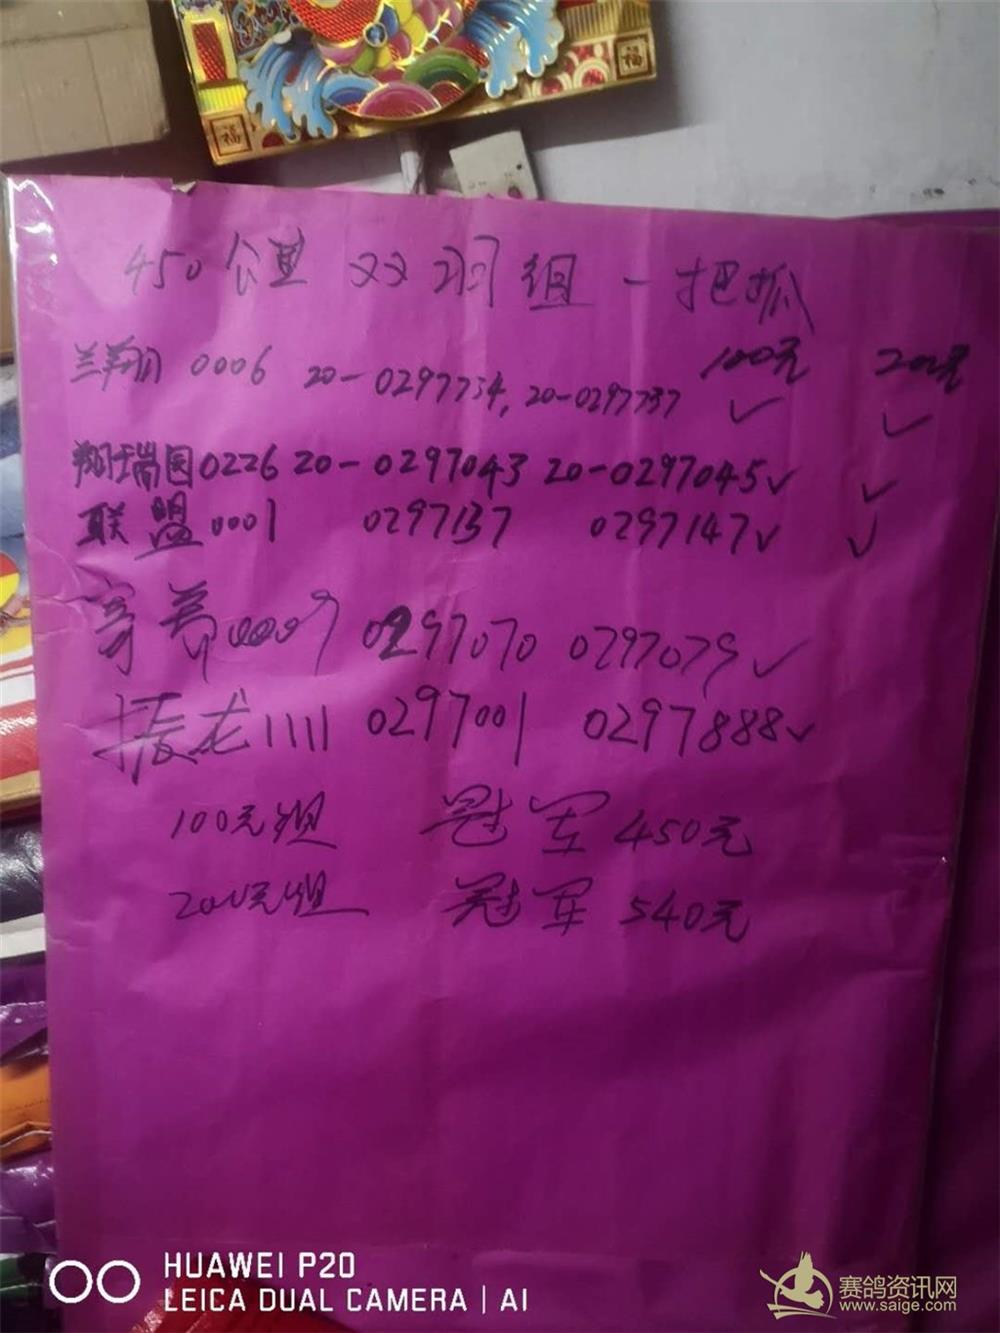 福
福
450公里 双羽组 一把抓
兰翔 0006 20-0297734, 20-0297737 100元 200元
✓ ✓
翔瑞园0226 20-0297043 20-0297045✓ ✓
联盟0001 0297137 0297147✓ ✓
寄养0009 0297070 0297079✓
振龙1111 0297001 0297888✓
100元组 冠军 450元
200元组 冠军 540元
HUAWEI P20
LEICA DUAL CAMERA | AI
赛鸽资讯网
www.saige.com